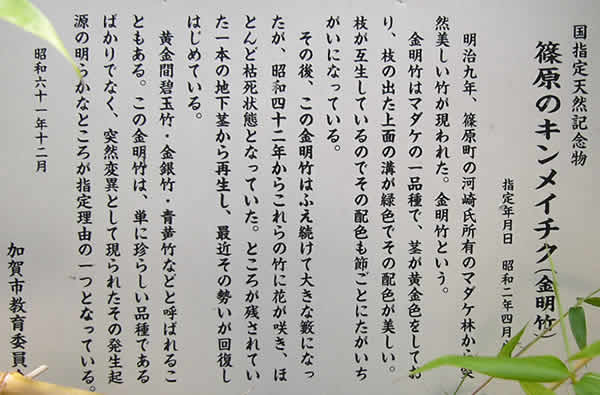 国指定天然記念物
篠原のキンメイチク(金明竹)
指定年月日 昭和二年四月
明治九年、篠原町の河崎氏所有のマダケ林から突
然美しい竹が現われた。金明竹という。
金明竹はマダケの一品種で、茎が黄金色をしてお
り、枝の出た上面の溝が緑色でその配色が美しい。
枝が互生しているのでその配色も節ごとにたがいち
がいになっている。
その後、この金明竹はふえ続けて大きな藪になっ
たが、昭和四十二年からこれらの竹に花が咲き、ほ
とんど枯死状態となっていた。ところが残されてい
た一本の地下茎から再生し、最近その勢いが回復し
はじめている。
黄金間碧玉竹・金銀竹・青黄竹などと呼ばれるこ
ともある。この金明竹は、単に珍らしい品種である
ばかりでなく、突然変異として現られたその発生起
源の明らかなところが指定理由の一つとなっている。
昭和六十一年十二月
加賀市教育委員